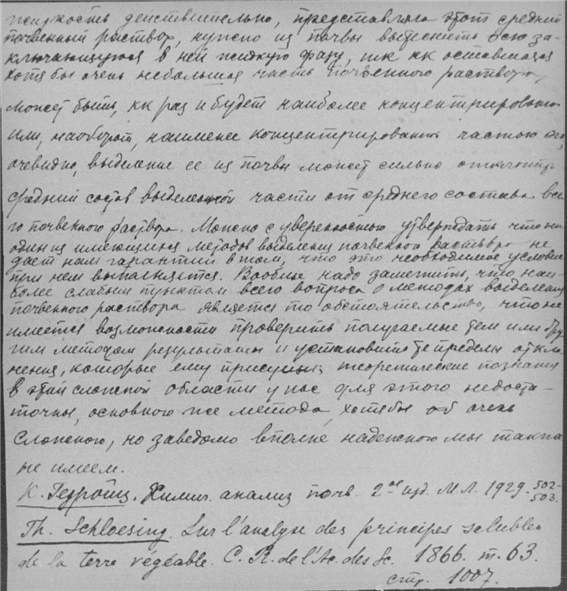 жидкость действительно, представляла этот средний
почвенный раствор, нужно из почвы вытеснить всю за-
ключающуюся в ней жидкую фазу, тк кк оставшаяся
хотя бы очень небольшая часть почвенного раствора,
может быть, кк раз и будет наиболее концентрированной
или, наоборот, наименее концентрированной частью его,
очевидно, выделение ее из почвы может сильно
средний состав выделенной части от среднего состава все-
го почвенного раствора. Можно с уверенностью утверждать что ни
один из имеющихся методов выделения почвенного раствора не
дает нам гарантии в том, что это необходимое условие
при нем выполняется. Вообще надо заметить, что наи-
более слабым пунктом всего вопроса о методах выделения
почвенного раствора является то обстоятельство, что не
имеется возможности проверить получаемые тем или дру-
гим методом результаты и установить те пределы откло-
нения, которые ему присущи; теоретические познания
в этой сложной области у нас для этого недоста-
точны, основного же метода, хотя бы об очень
сложного, но заведомо вполне надежного мы также
не имеем.
К. Гедройц. Химич. анализ почв. 2ое изд. М.Л. 1929. 502-503.
Th. Schloesing. Sur l'analyse des principes solubles
de la terre végéable. C. R. de l'Ac. des Sc. 1866. т. 63.
стр. 1007.